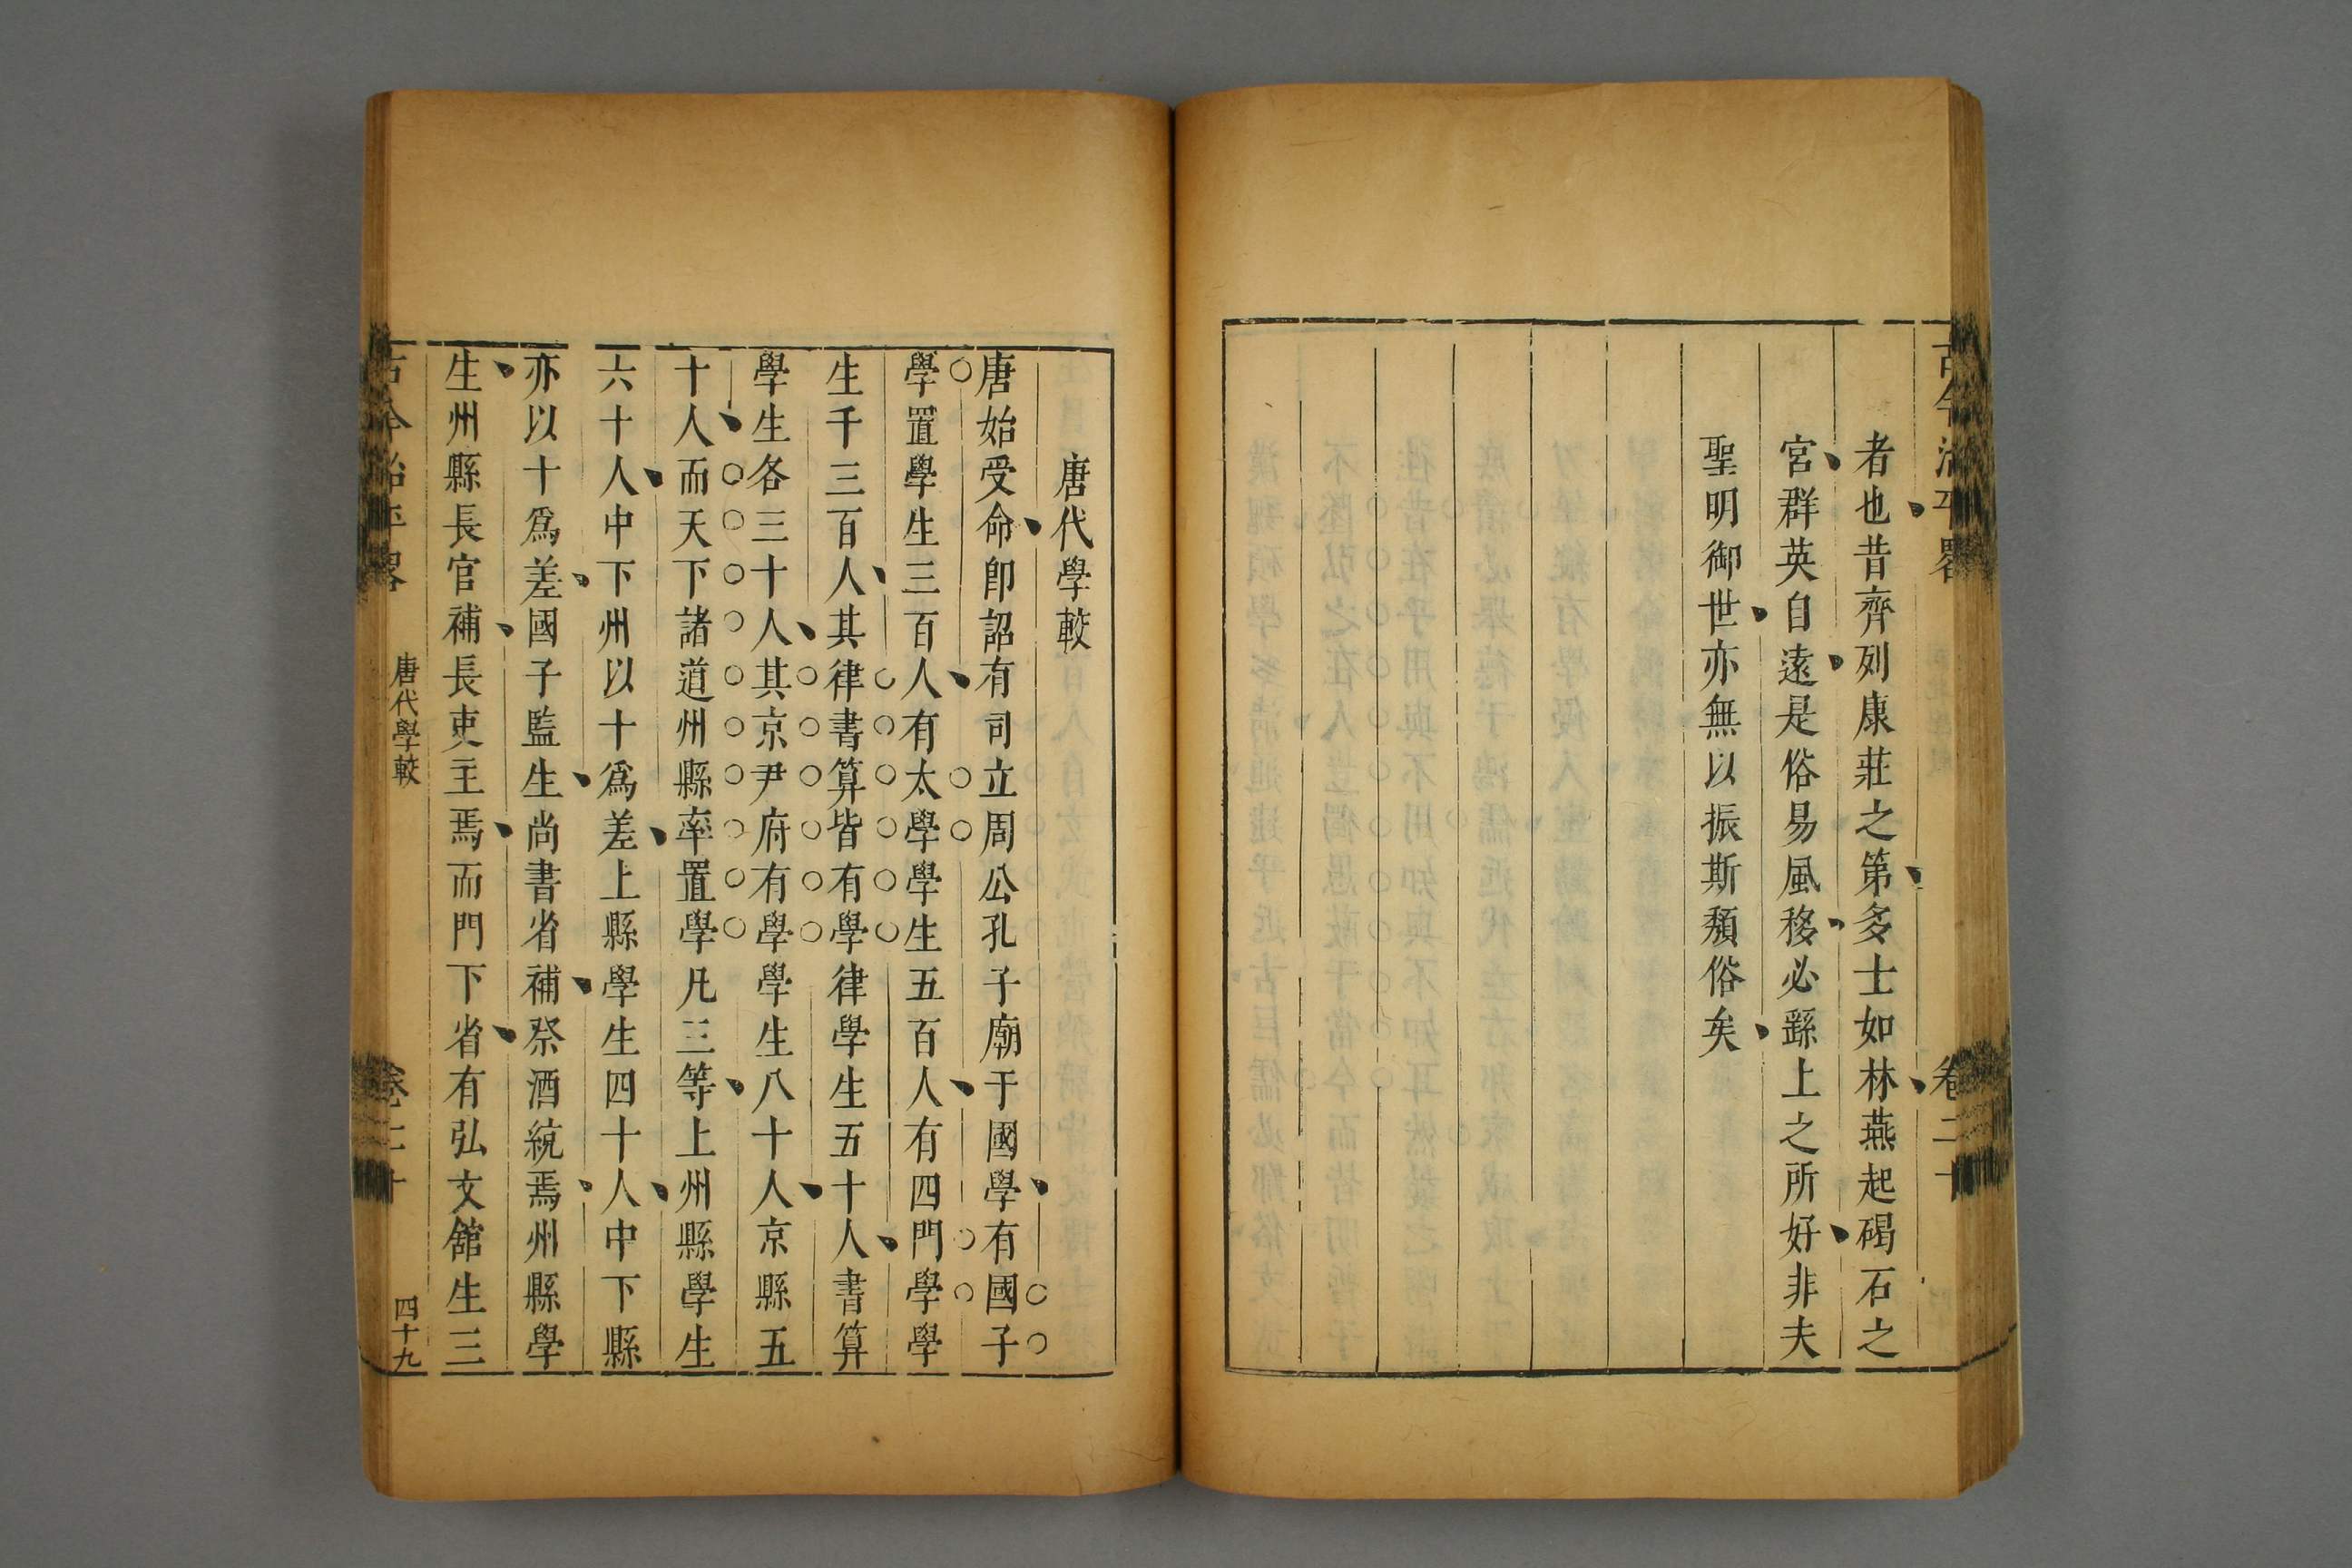 古今治平畧
卷二十
者也昔齊列康莊之第多士如林燕起碣石之
宮群英自遠是俗易風移必繇上之所好非夫
聖明御世亦無以振斯頹俗矣
唐代學較
唐始受命卽詔有司立周公孔子廟于國學有國子
學置學生三百人有太學學生五百人有四門學學
生千三百人其律書算皆有學律學生五十人書算
學生各三十人其京尹府有學學生八十人京縣五
十人而天下諸道州縣率置學凡三等上州縣學生
六十人中下州以十爲差上縣學生四十人中下縣
亦以十爲差國子監生尚書省補祭酒統焉州縣學
生州縣長官補長吏主焉而門下省有弘文舘生三
古今治平畧
唐代學較
卷二十
四十九